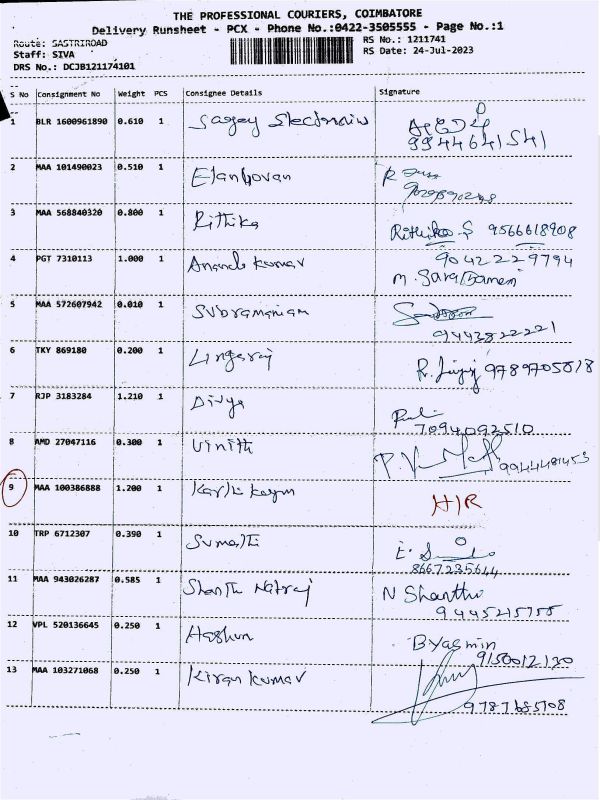 THE PROFESSIONAL COURIERS, COIMBATORE
Delivery Runsheet - PCX - Phone No.:0422-3505555 - Page No.:1
Route: SASTRIROAD
RS No.: 1211741
Staff: SIVA
RS Date: 24-Jul-2023
DRS No.: DCJB121174101
S No Consignment No Weight PCS Consignee Details Signature
1 BLR 1600961890 0.610 1
9944641541
2 MAA 101490023 0.510 1 Elangovan
3 MAA 568840320 0.800 1 Rithika Rithika S 9566618908
4 PGT 7310113 1.000 1 Anand Kumar 9042229794
5 MAA 572607942 0.010 1 Subramaniam
9443822221
6 TKY 869180 0.200 1 Lingaraj 9789705018
7 RJP 3183284 1.210 1 Divya
7094092510
8 AMD 27047116 0.300 1 Vinith
9 MAA 100386888 1.200 1 H/R
10 TRP 6712307 0.390 1 Sumathi
8667235644
11 MAA 943026287 0.585 1 Shanthi Natraj N Shanthi
12 VPL 520136645 0.250 1 B.Yasmin
9150012130
13 MAA 103271068 0.250 1 Kiran Kumar